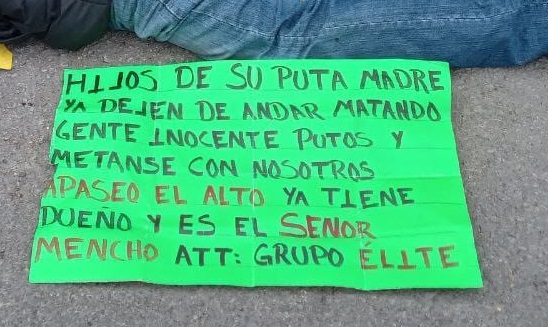 HIJOS DE SU PUTA MADRE
YA DEJEN DE ANDAR MATANDO
GENTE INOCENTE PUTOS Y
METANSE CON NOSOTROS
APASEO EL ALTO YA TIENE
DUEÑO Y ES EL SEÑOR
MENCHO ATT: GRUPO ÉLITE